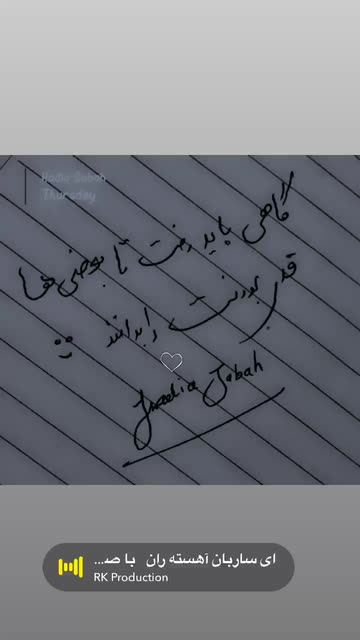 Sabah
Thursday
گاهی باید رفت تا بعضی ها
قدر بودنت را بدانند
Sabah
ای ساربان آهسته ران با صـ...
RK Production